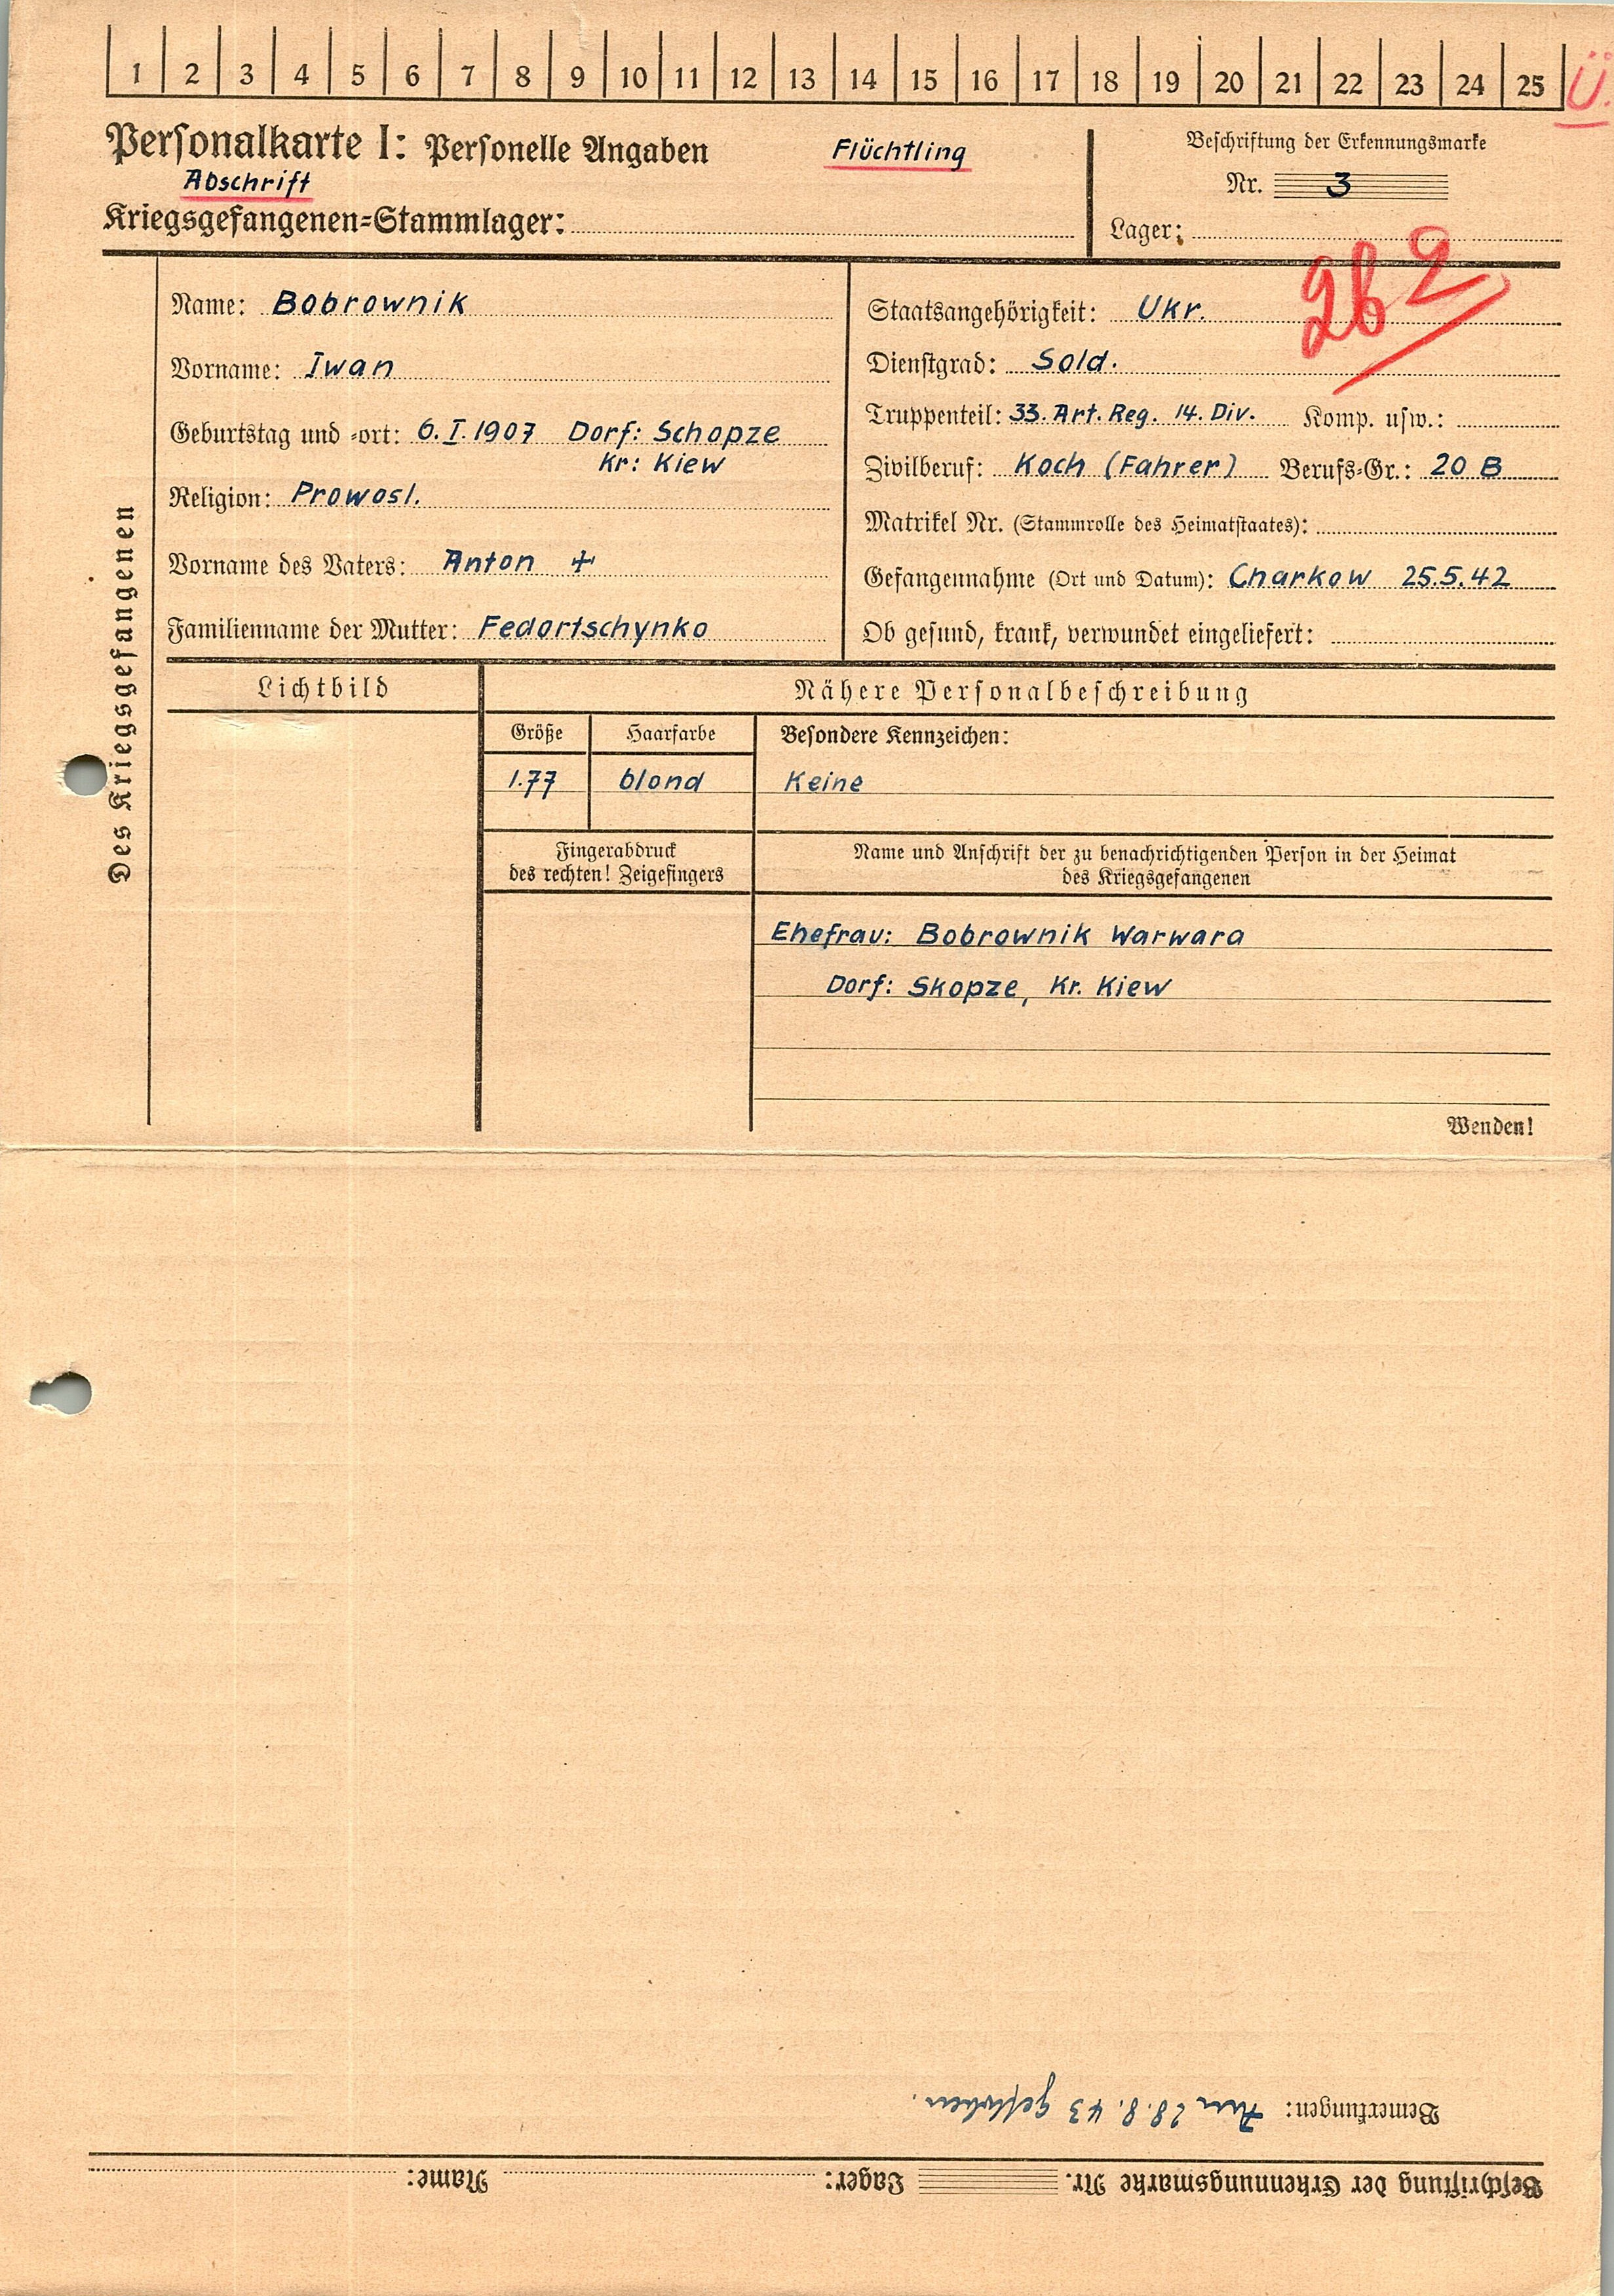 1 2 3 4 5 6 7 8 9 10 11 12 13 14 15 16 17 18 19 20 21 22 23 24 25 Ü.
Personalkarte I: Personelle Angaben
Flüchtling
Abschrift
Kriegsgefangenen=Stammlager:
Beschriftung der Erkennungsmarke
Nr. 3
Lager:
Des Kriegsgefangenen
Name: Bobrownik
Vorname: Iwan
Geburtstag und =ort: 6.I.1907 Dorf: Schopze
Kr: Kiew
Religion: Prowosl.
Vorname des Vaters: Anton +
Familienname der Mutter: Fedortschynko
Staatsangehörigkeit: Ukr.
Dienstgrad: Sold.
Truppenteil: 33. Art. Reg. 14. Div. Komp. usw.:
Zivilberuf: Koch (Fahrer) Berufs=Gr.: 20 B
Matrikel Nr. (Stammrolle des Heimatstaates):
Gefangennahme (Ort und Datum): Charkow 25.5.42
Ob gesund, krank, verwundet eingeliefert:
Lichtbild
Nähere Personalbeschreibung
Größe
Haarfarbe
Besondere Kennzeichen:
1.77
blond
Keine
Fingerabdruck
des rechten! Zeigefingers
Name und Anschrift der zu benachrichtigenden Person in der Heimat
des Kriegsgefangenen
Ehefrau: Bobrownik Warwara
Dorf: Skopze, Kr. Kiew
Wenden!
Beschriftung der Erkennungsmarke Nr. Lager: Name:
Bemerkungen: Am 28.8.43 geflohen.